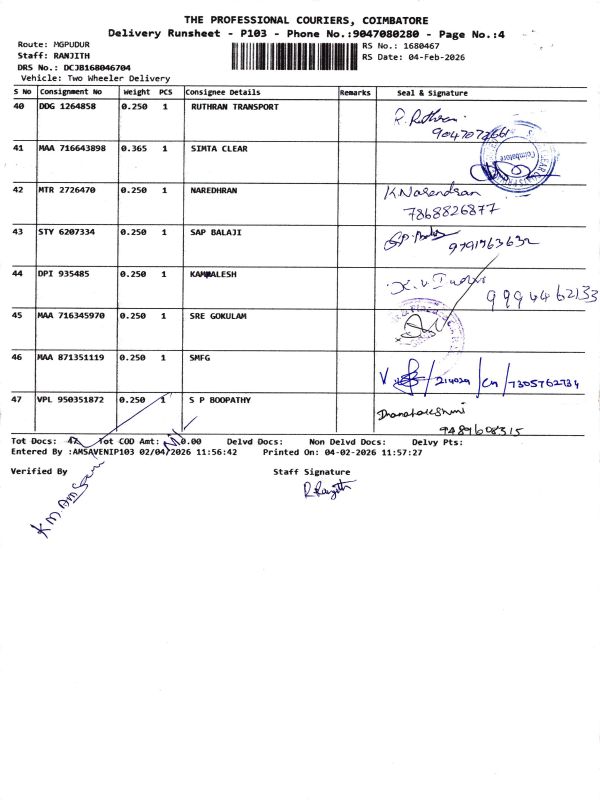 THE PROFESSIONAL COURIERS, COIMBATORE
Delivery Runsheet - P103 - Phone No.:9047080280 - Page No.:4
Route: MGPUDUR
Staff: RANJITH
DRS No.: DCJB168046704
Vehicle: Two Wheeler Delivery
RS No.: 1680467
RS Date: 04-Feb-2026
S No Consignment No Weight PCS Consignee Details Remarks Seal & Signature
40 DDG 1264858 0.250 1 RUTHRAN TRANSPORT R. Ruthran
41 MAA 716643898 0.365 1 SIMTA CLEAR Coimbatore
42 MTR 2726470 0.250 1 NAREDHRAN K Narendran
7868826877
43 STY 6207334 0.250 1 SAP BALAJI
9791763632
44 DPI 935485 0.250 1 KAMALESH
9994462133
45 MAA 716345970 0.250 1 SRE GOKULAM
46 MAA 871351119 0.250 1 SMFG
7305762734
47 VPL 950351872 0.250 1 S P BOOPATHY Dhanalakshmi
9489698315
Tot Docs: 47 Tot COD Amt: 0.00 Delvd Docs: Non Delvd Docs: Delvy Pts:
Entered By :AMSAVENIP103 02/04/2026 11:56:42 Printed On: 04-02-2026 11:57:27
Verified By Staff Signature
R. Ranjith